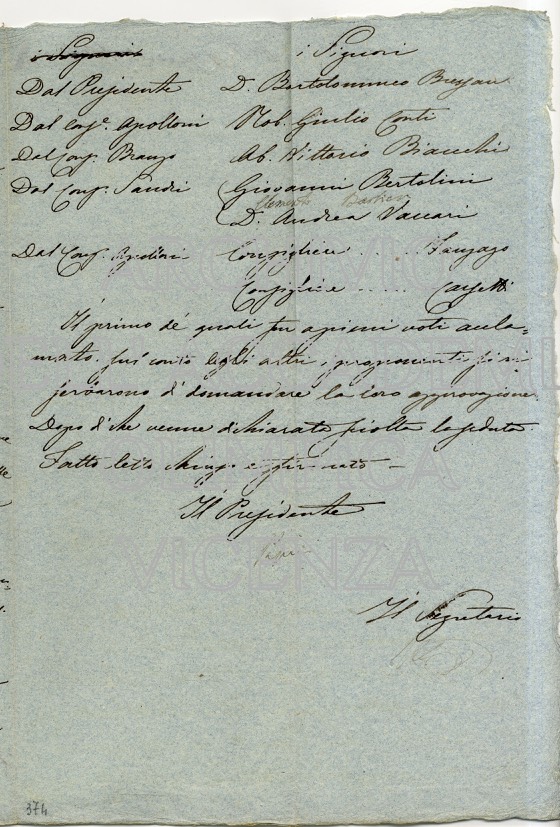 i Signori i Signori
Dal Presidente D. Bortolommeo Bressan
Dal Consr. Apolloni Nob. Giulio Conti
Dal Cons. Branzo Ab. Vittorio Biacchi
Dal Cons. Sandri Giovanni Bertolini
Clemente Barbieri
D. Andrea Vaccari
Dal Cons. Apolloni Consigliere ..... Sangago
Consigliere .....
Il primo de quali fu a pieni voti accla=
mato. sul conto degli altri i proponenti si ri
servarono di domandare la loro approvazione.
Dopo di che venne dichiarata sciolta la seduta
Fatto letto chiuso e firmato —
Il Presidente
Il Segretario
VICENZA
374